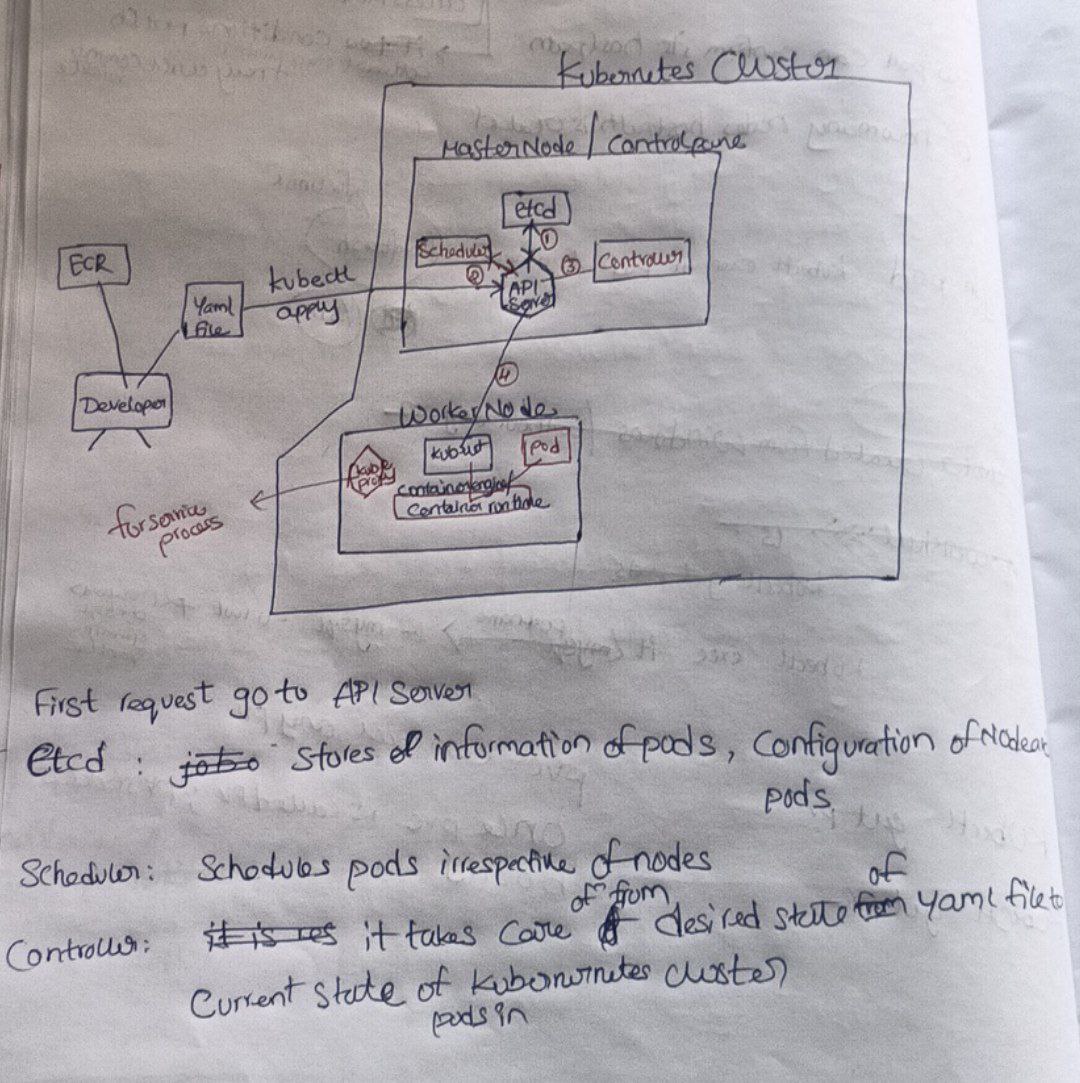 Kubernetes Cluster
MasterNode / Controlpane
etcd
Scheduler
①
②
③
Controller
API
Server
ECR
Yaml
File
kubectl
apply
Developer
④
Worker Node
kube
proxy
kubelet
pod
container engine/
Container runtime
for service
process
First request go to API Server
etcd : jobo stores of information of pods, Configuration of Node
pods.
Scheduler: Schedules pods irrespective of nodes
of from of
Controller: it is res it takes care of desired state from yaml file to
Current state of Kubernernetes cluster
pods in